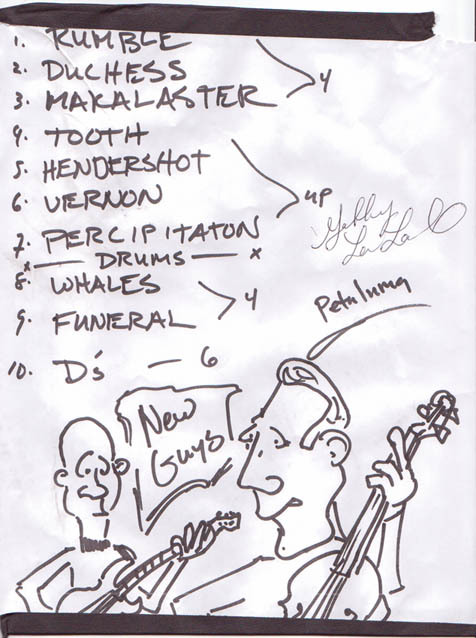 1. RUMBLE
2. DUCHESS
3. MAKALASTER
4
4. TOOTH
5. HENDERSHOT
6. VERNON
7. PERCIPITATON
UP
x — DRUMS — x
8. WHALES
9. FUNERAL
4
10. D's — 6
Petaluma
New
Guys